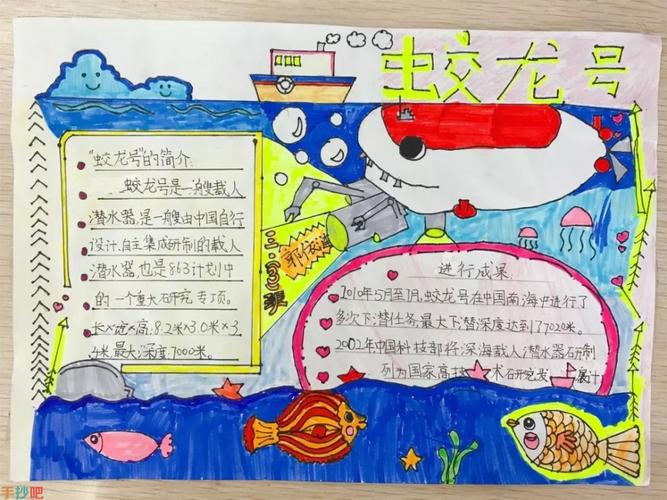 蛟龙号
"蛟龙号"的简介
蛟龙号是一艘载人
潜水器,是一艘由中国自行
设计、自主集成研制的载人
潜水器,也是863计划中
的一个重大研究专项。
长×宽×高:8.2米×3.0米×3.
4米,最大深度:7000米。
三.(3)班
进行成果
2010年5月至7月,蛟龙号在中国南海中进行了
多次下潜任务,最大下潜深度达到了7020米。
2002年中国科技部将深海载人潜水器研制
列为国家高技术研究发展计
手抄吧